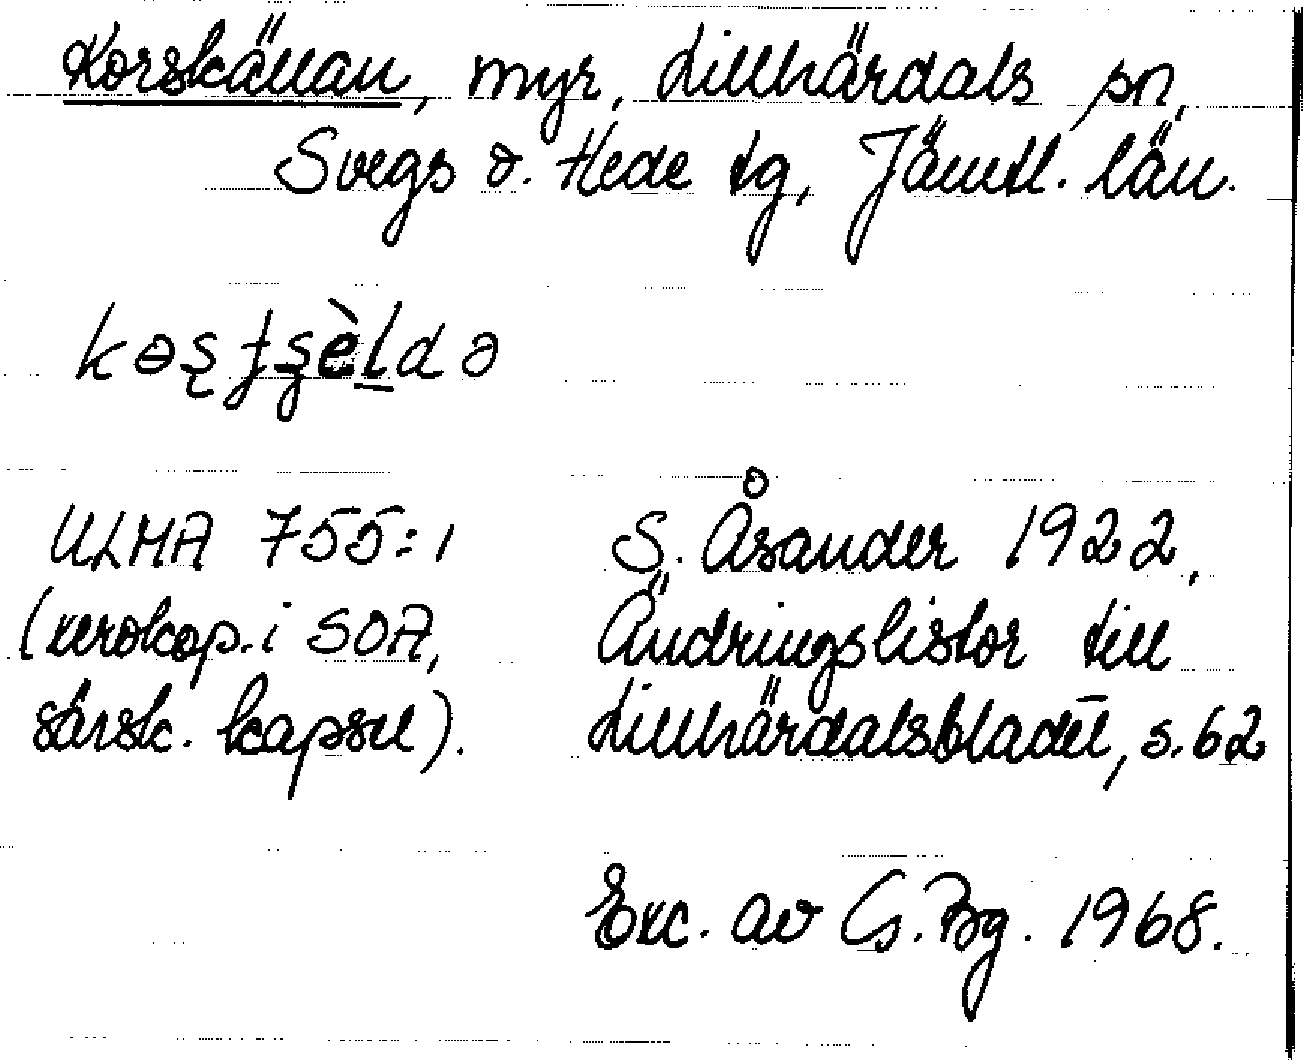 Korskällan, myr, Lillhärdals sn,
Svegs o. Hede tg, Jämtl. län.
ULMA 755:1 S. Åsander 1922,
(xerokop. i SOA, Ändringslistor till
särsk. kapsel). Lillhärdalsbladet, s. 62
Exc. av G. Bg. 1968.